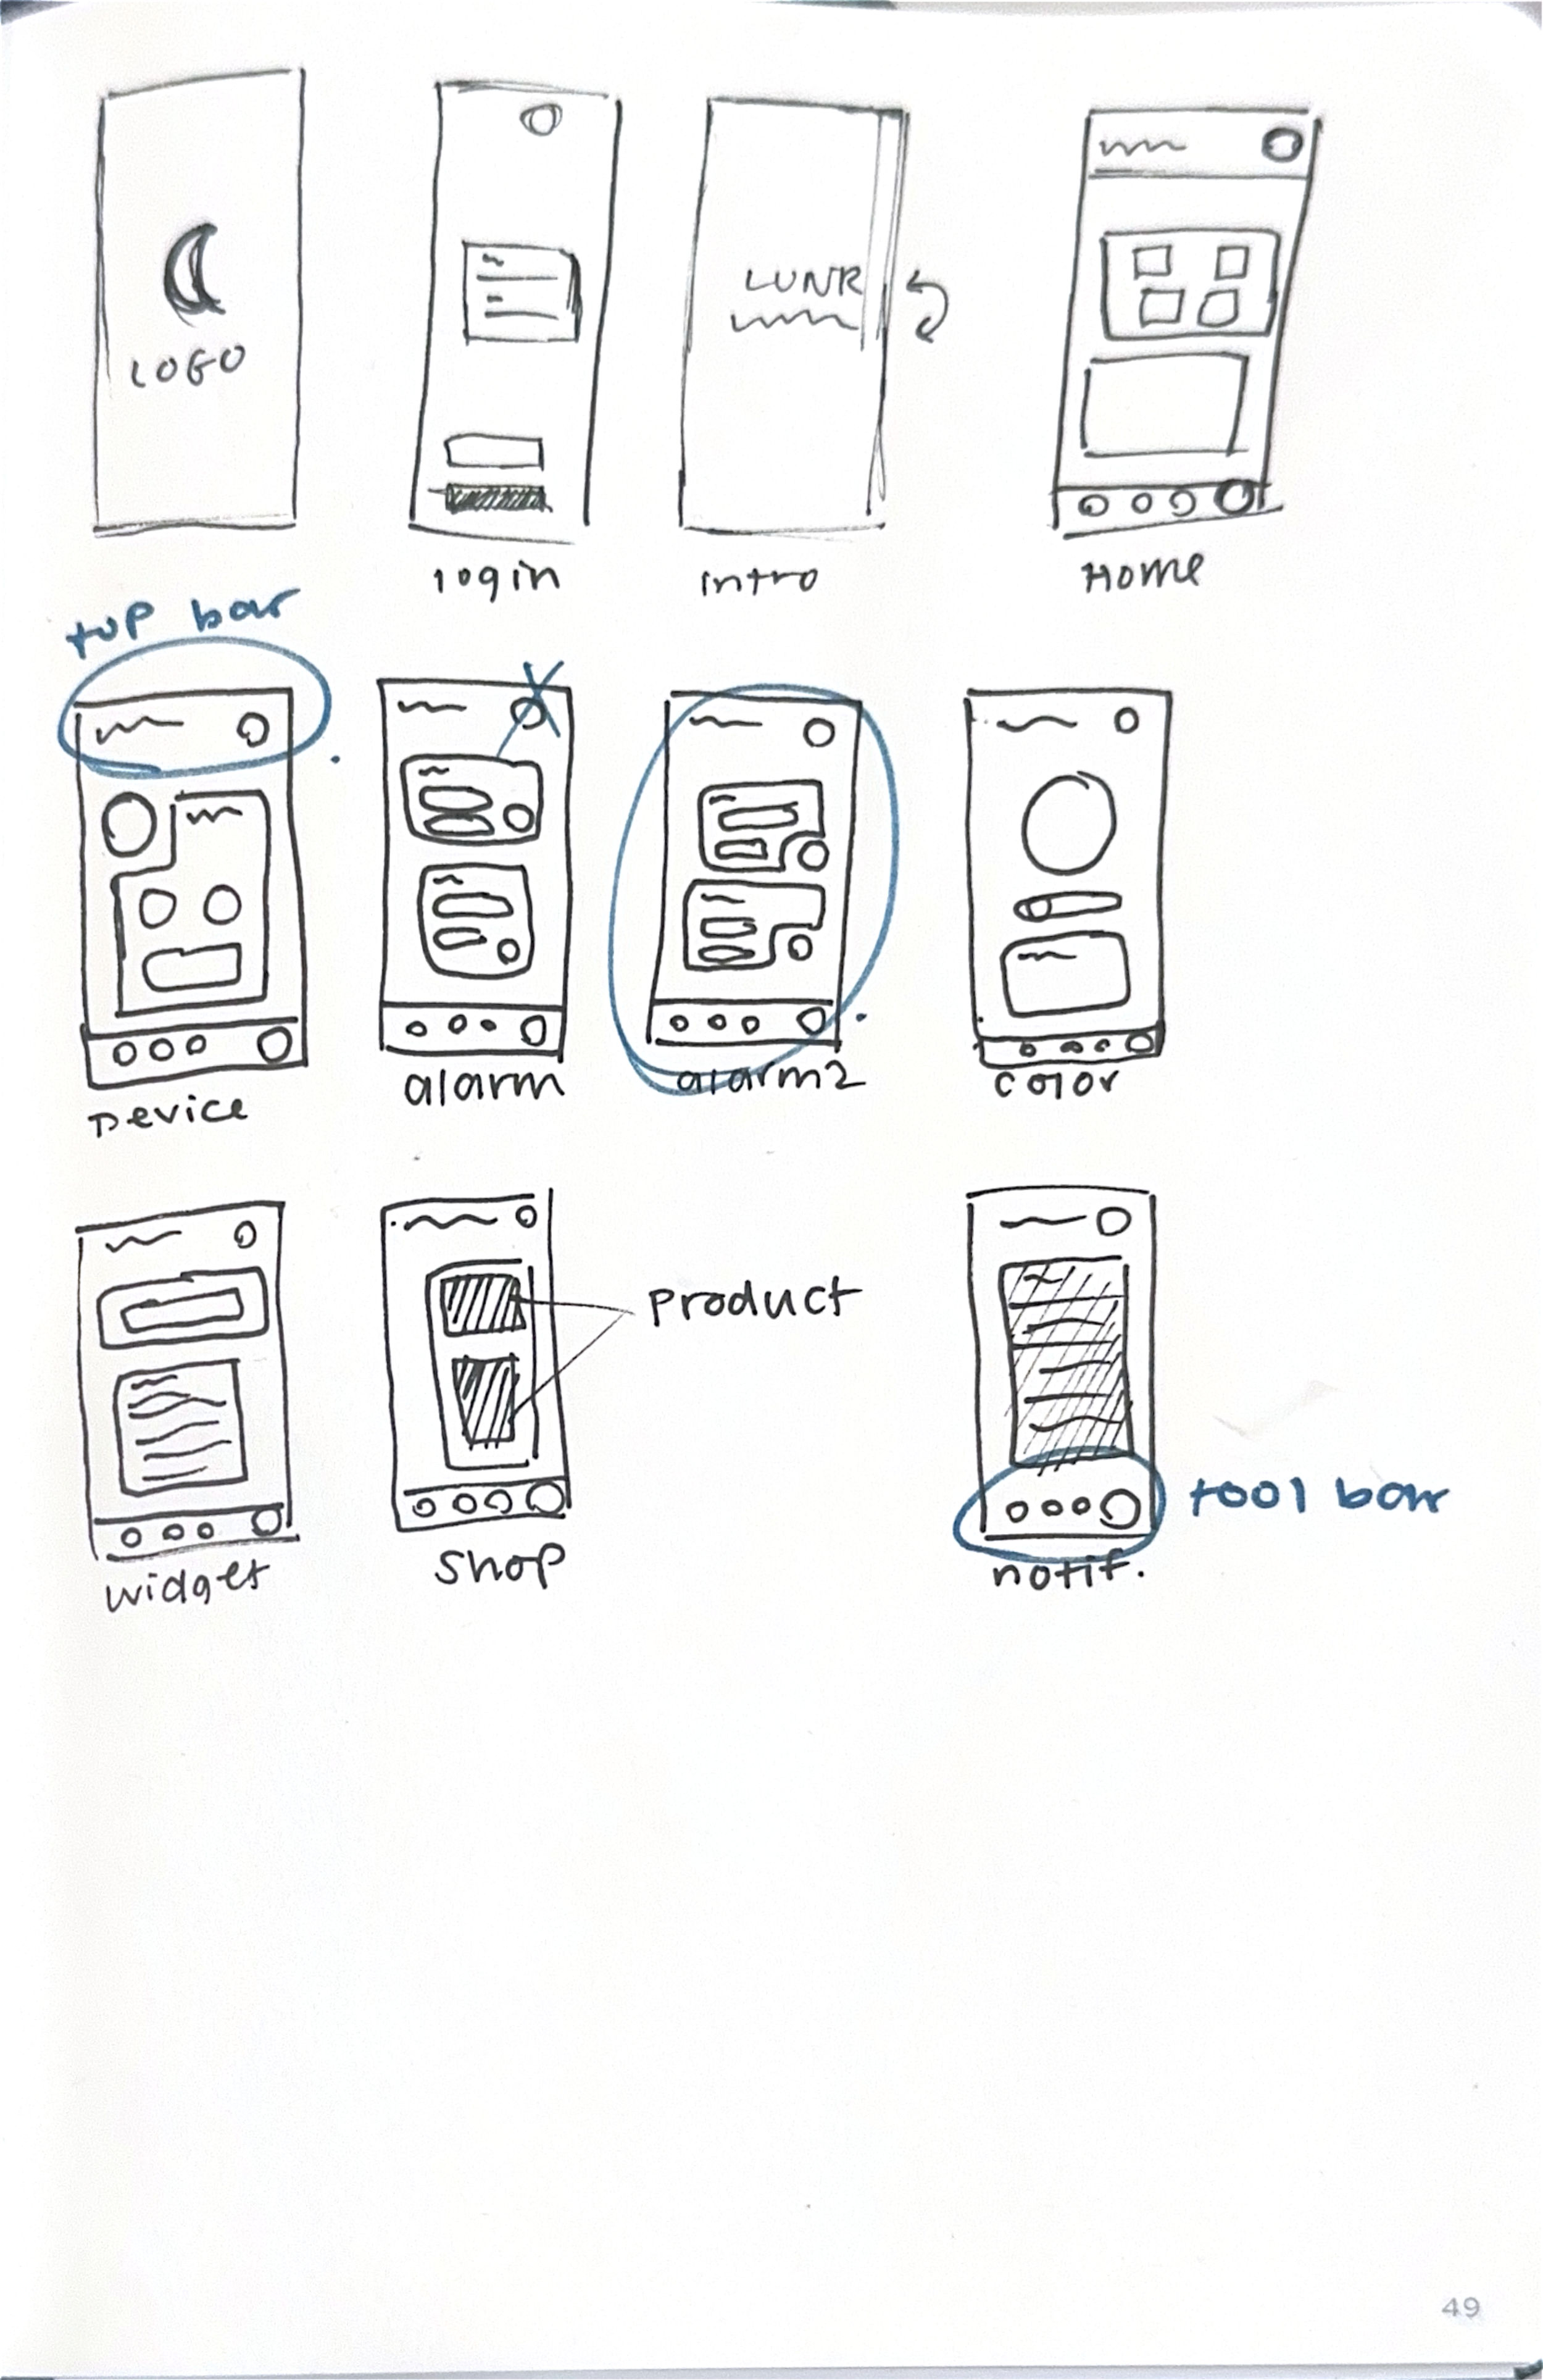 LOGO
LUNR
login
intro
Home
top bar
Device
alarm
alarm2
color
product
tool bar
widget
shop
notif.
49